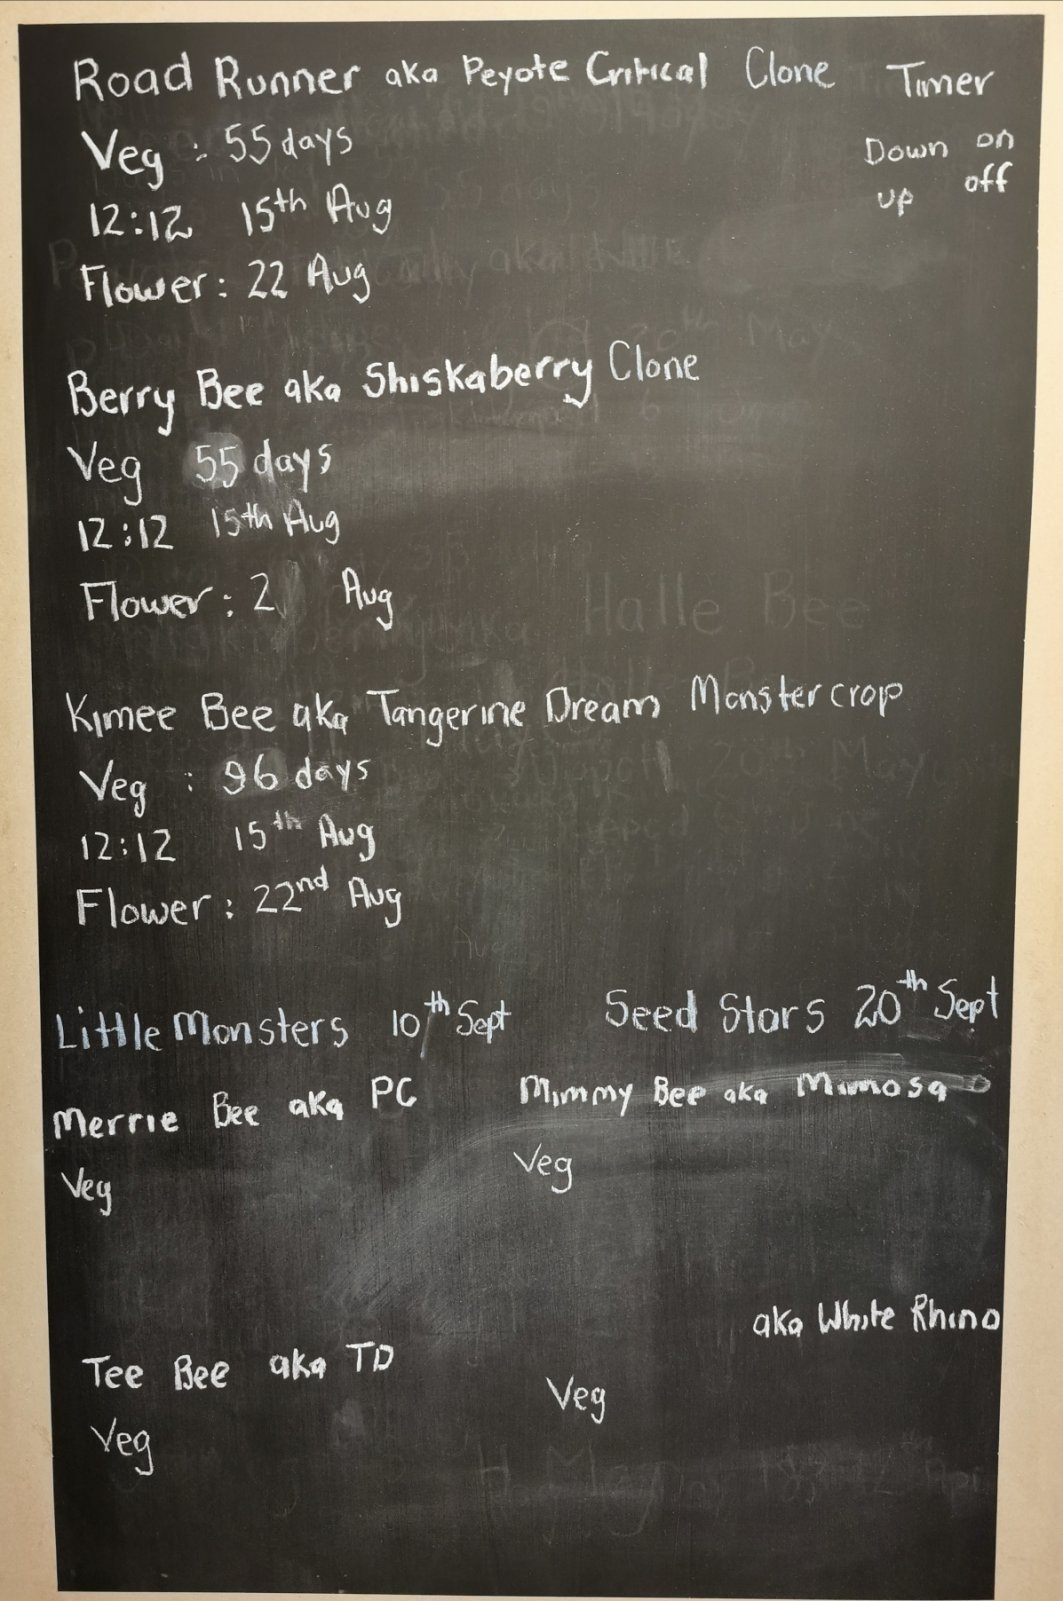 Road Runner aka Peyote Critical Clone Timer
Down on
up off
Veg : 55 days
12:12 15th Aug
Flower : 22 Aug
Berry Bee aka Shiskaberry Clone
Veg 55 days
12:12 15th Aug
Flower : 2 Aug
Kimee Bee aka Tangerine Dream Monstercrop
Veg : 96 days
12:12 15th Aug
Flower : 22nd Aug
Little Monsters 10th Sept
Merrie Bee aka PC
Veg
Tee Bee aka TD
Veg
Seed Stars 20th Sept
Mimmy Bee aka Mimosa
Veg
aka White Rhino
Veg
Halle Bee